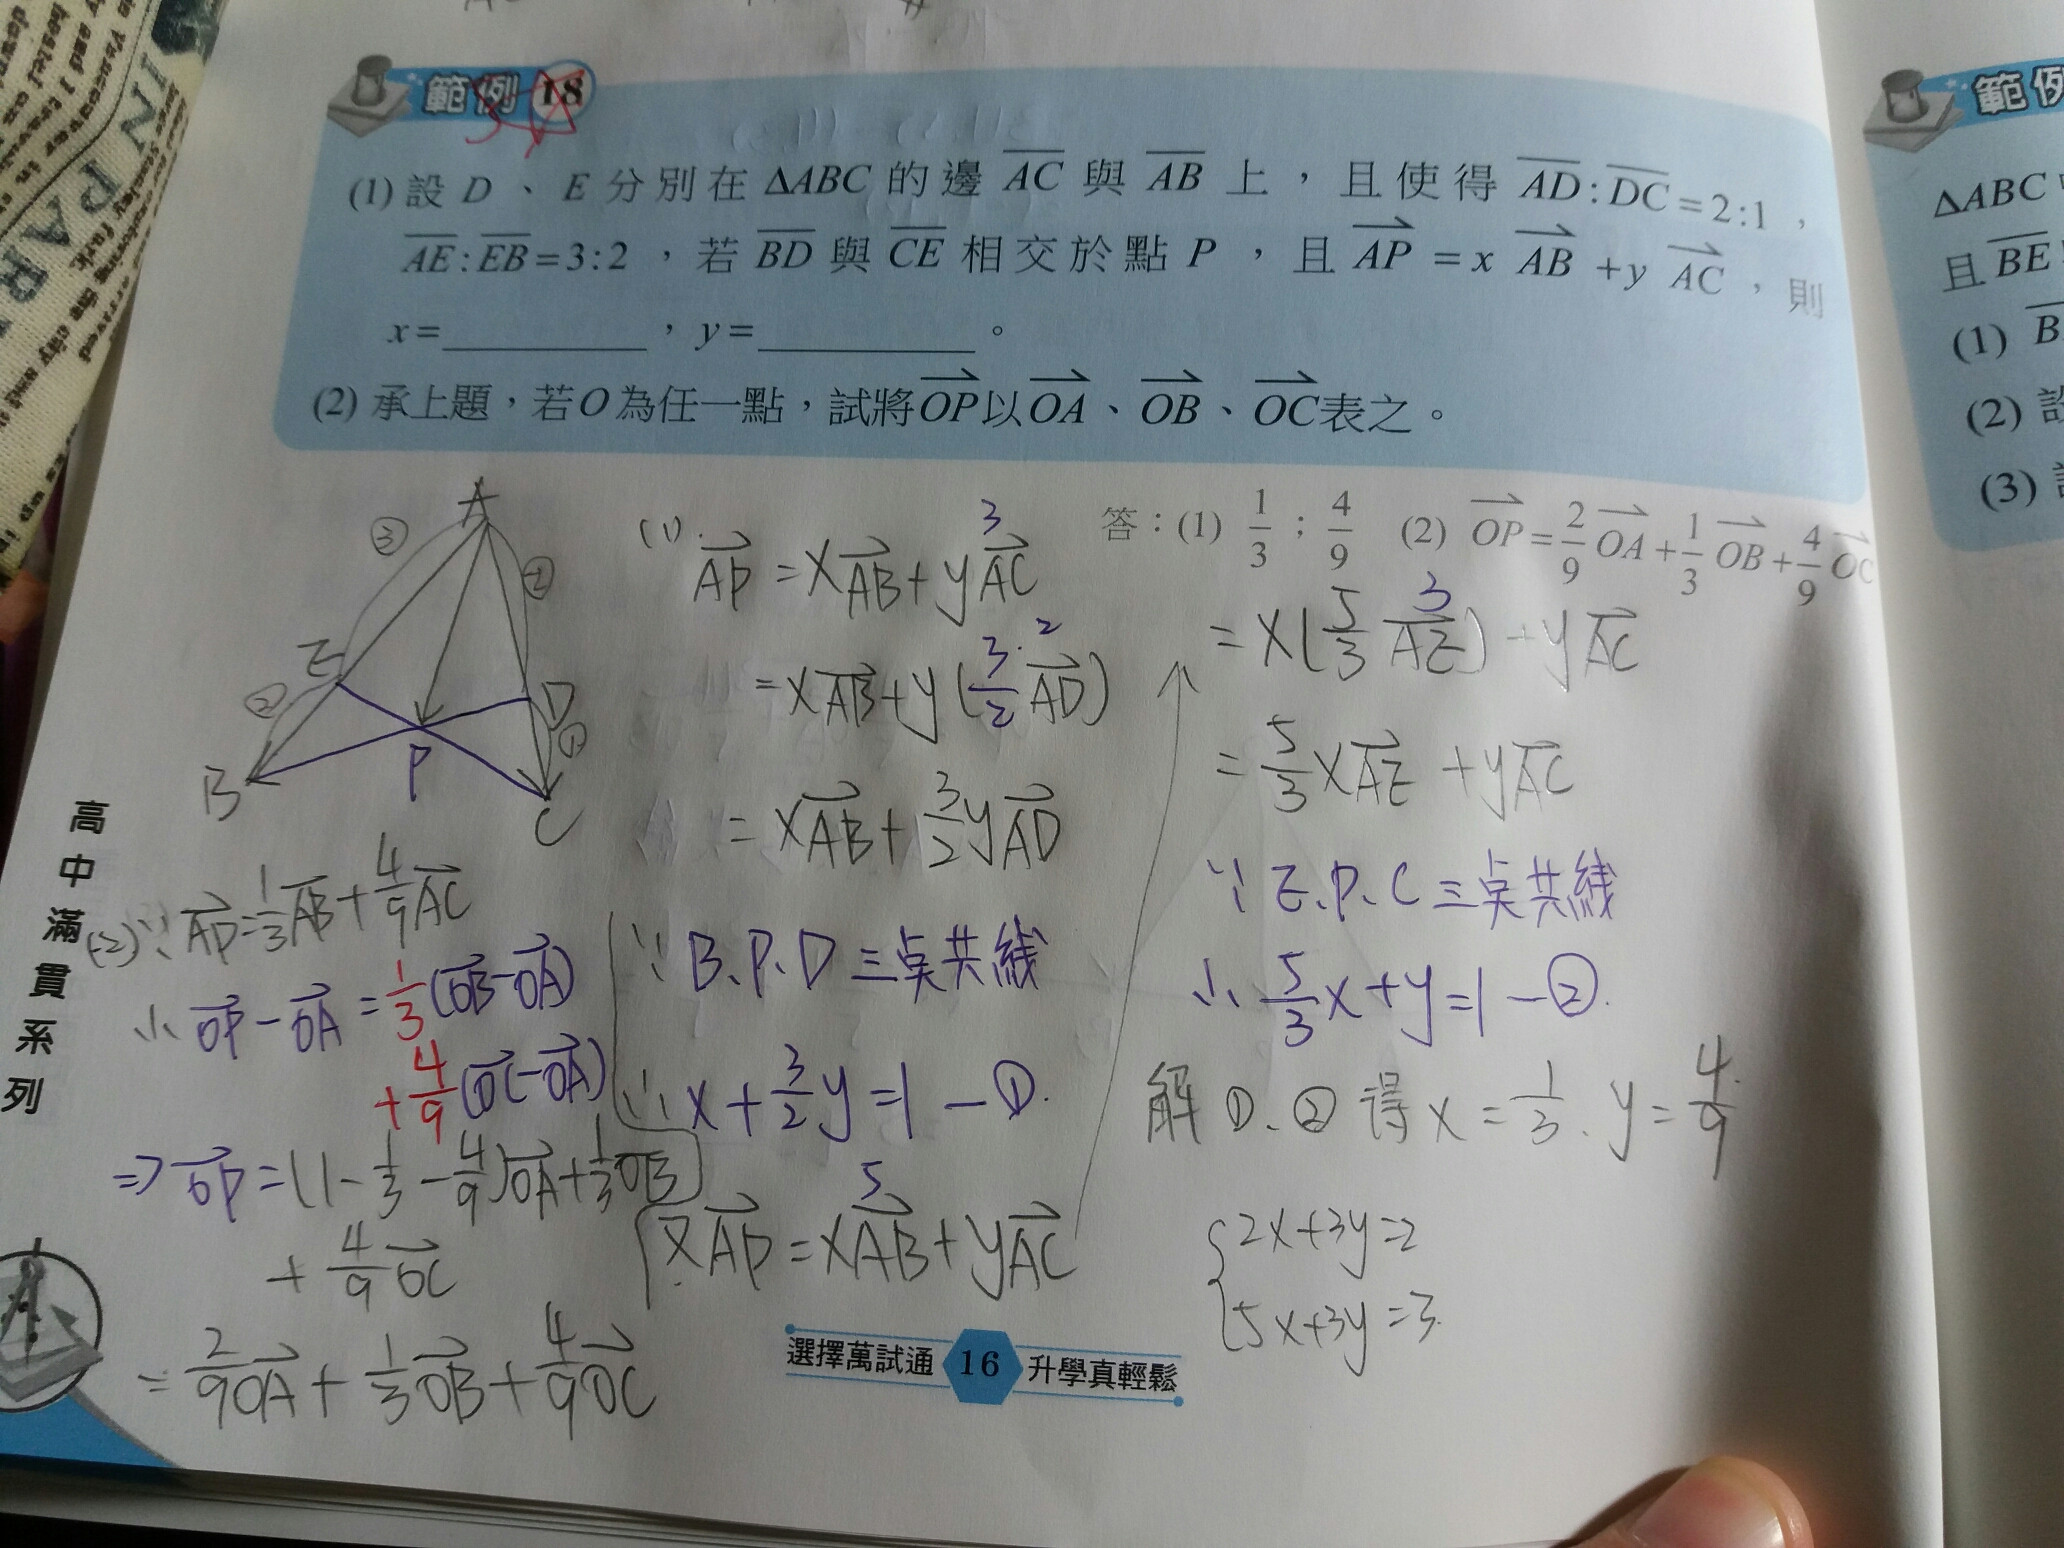 範例 18
(1) 設 D 、 E 分別在 ΔABC 的邊 AC 與 AB 上,且使得 AD:DC=2:1,
AE:EB=3:2,若 BD 與 CE 相交於點 P ,且 AP =x AB +y AC ,則
x=__________,y=__________。
(2) 承上題,若O為任一點,試將OP以OA、OB、OC表之。
答:(1) 1/3 ; 4/9 (2) OP=2/9 OA+1/3 OB+4/9 OC
A
③
②
E
②
D
①
B
P
C
(1) AP = xAB + yAC
3
= xAB + y(3/2 AD)
3 2
= xAB + 3/2 yAD
∵ B、P、D 三点共線
∴ x + 3/2 y = 1 — ①
AP = xAB + yAC
5
= x(5/3 AE) + yAC
3
= 5/3 xAE + yAC
∵ E、P、C 三点共線
∴ 5/3 x + y = 1 — ②
解 ①、② 得 x = 1/3、y = 4/9
2x+3y=2
5x+3y=3
(2) ∵ AP = 1/3 AB + 4/9 AC
∴ OP − OA = 1/3 (OB − OA)
+ 4/9 (OC − OA)
⇒ OP = (1 − 1/3 − 4/9)OA + 1/3 OB
+ 4/9 OC
= 2/9 OA + 1/3 OB + 4/9 OC
高中滿貫系列
選擇萬試通 16 升學真輕鬆
範例
ΔABC
且BE
(1) B
(2)
(3)